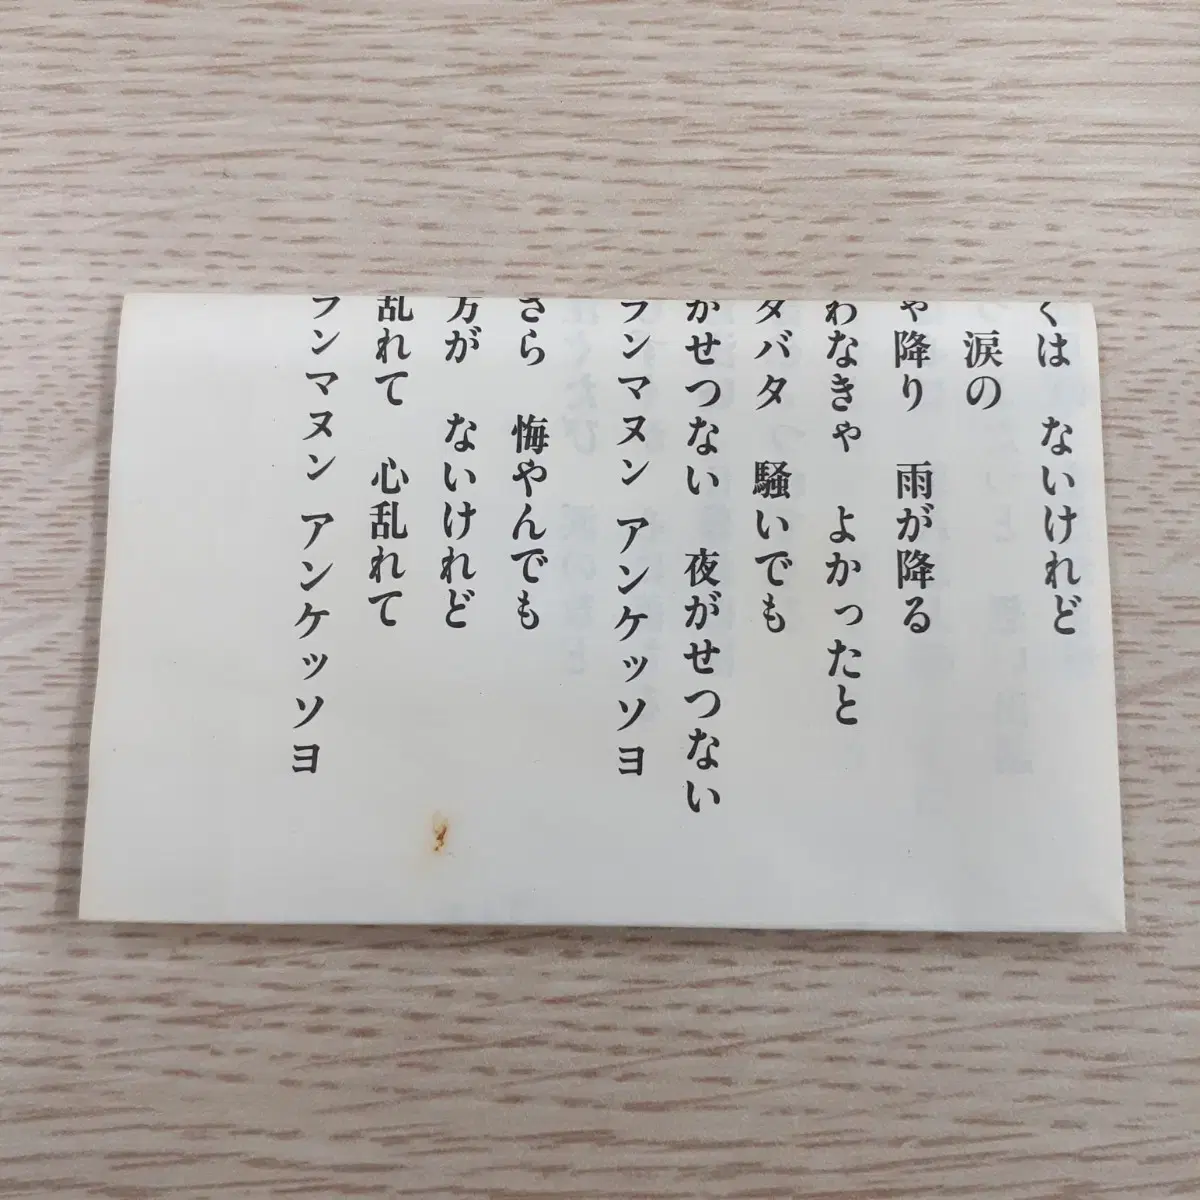 くは ないけれど
涙の
や降り 雨が降る
わなきゃ よかったと
タバタ 騒いでも
がせつない 夜がせつない
ランマヌン アンケッソヨ
さら 悔やんでも
方が ないけれど
乱れて 心乱れて
ランマヌン アンケッソヨ